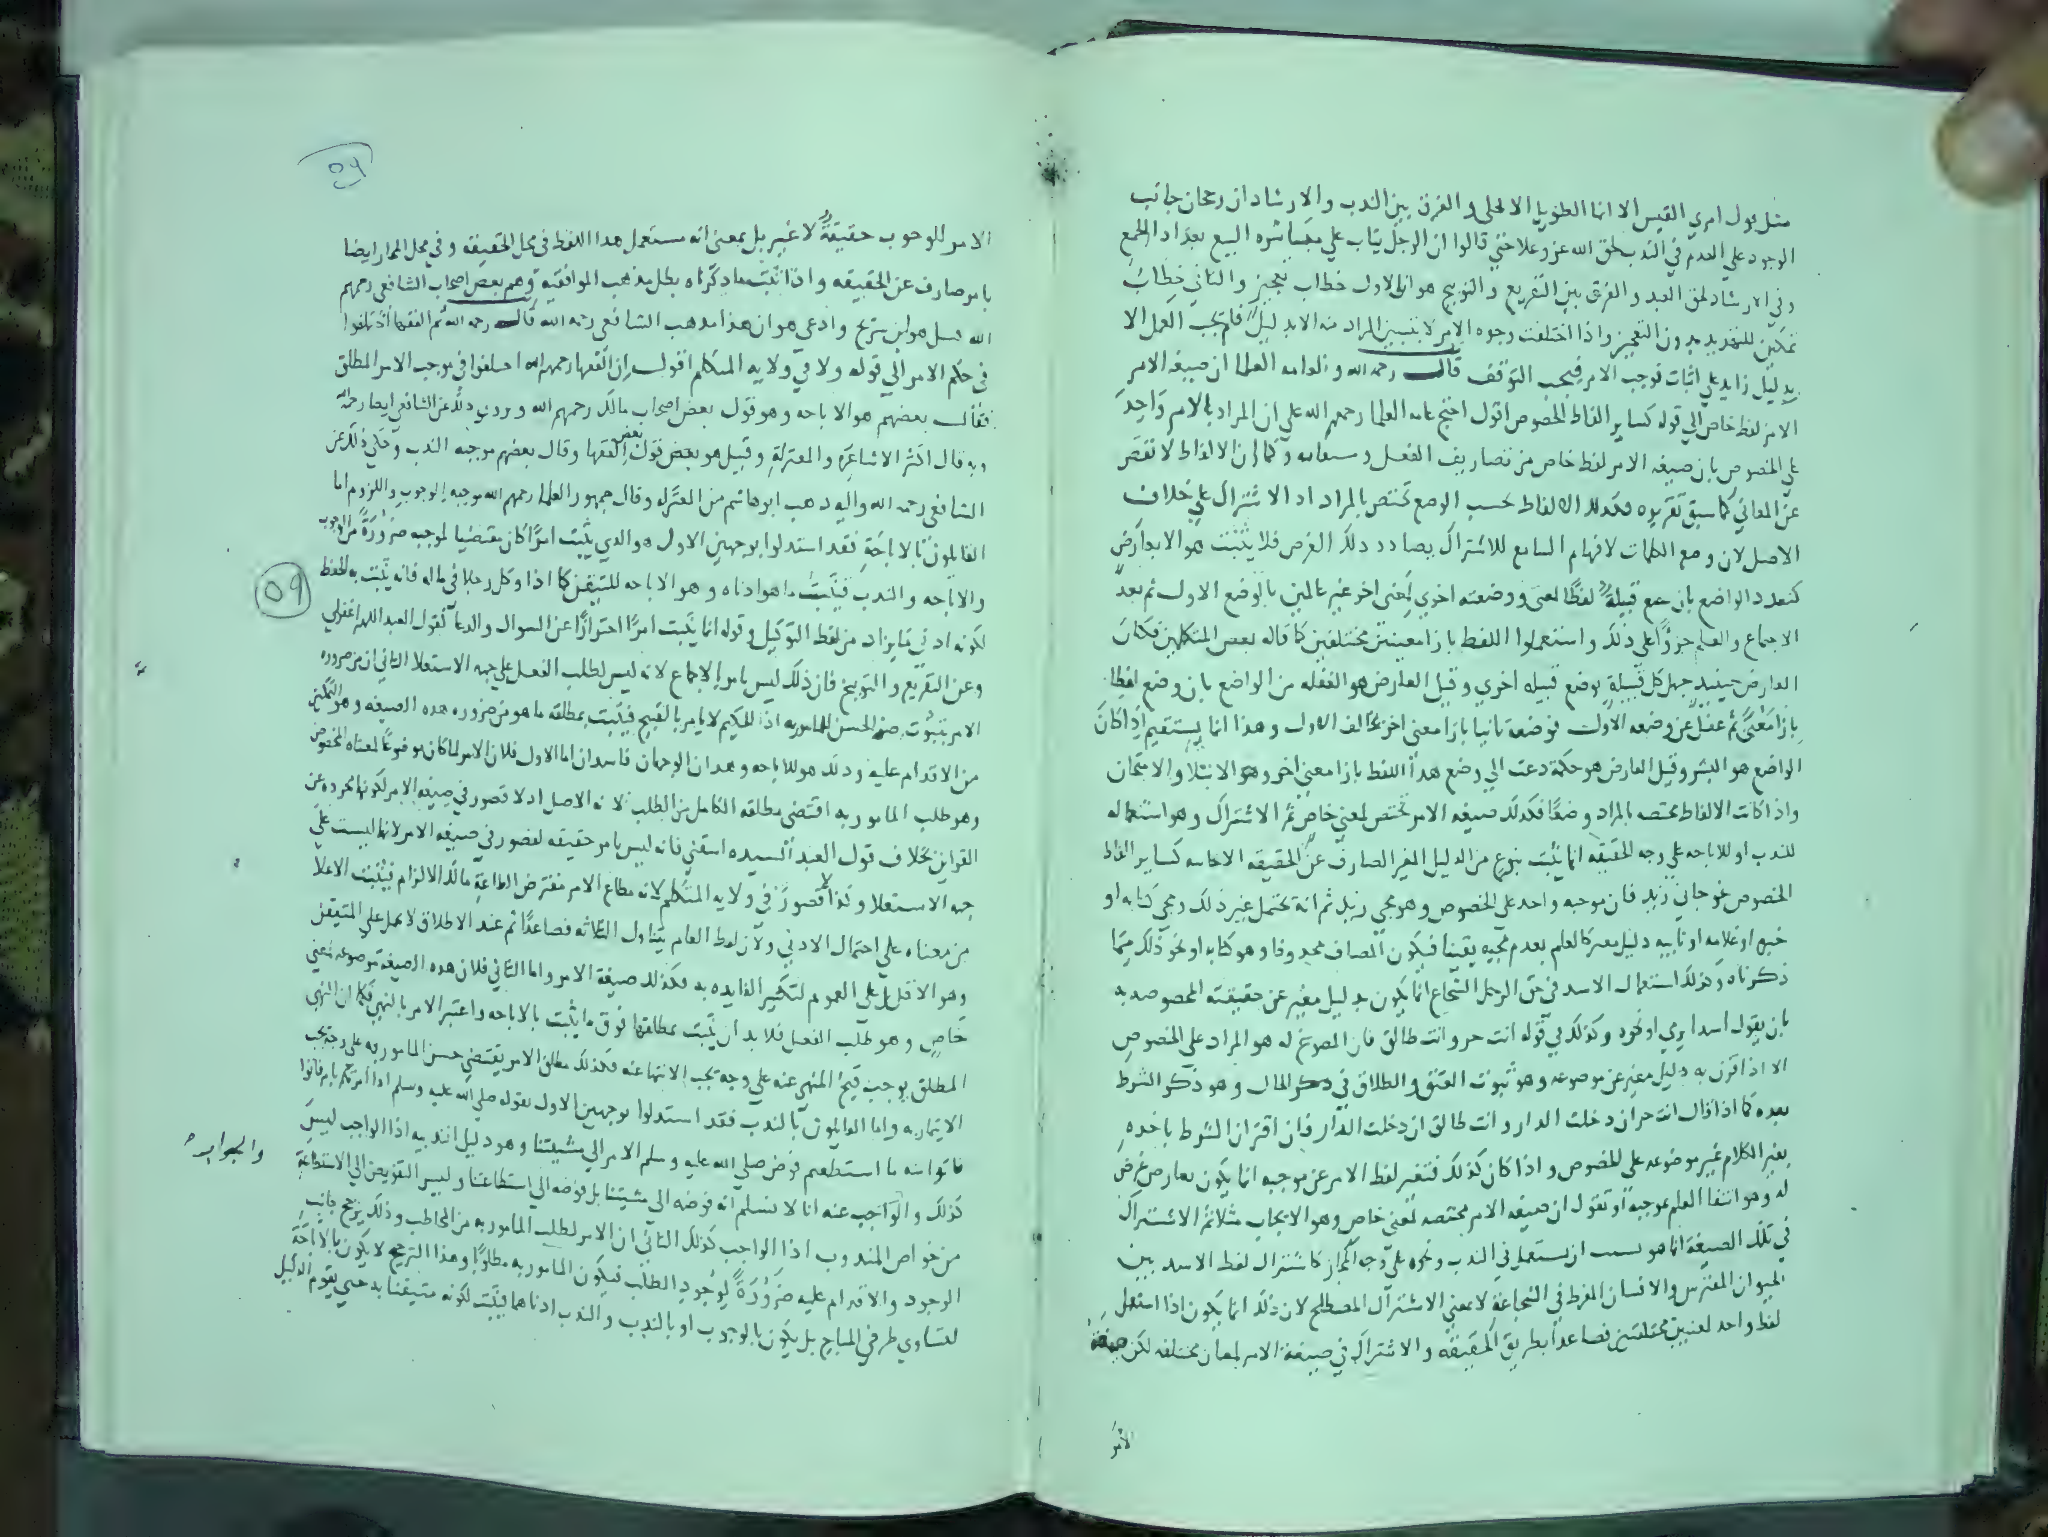 مثل بول امري القيس الا انما الطويا الا انجلي و الفرق بين الندب والارشاد ان رجحان جانب
الوجود علي العدم في الندب لحق الله عز وعلا حتي قالوا ان الرجل يثاب علي مباشره البيع بعد اداء الجمع
وفي الارشاد لحق العبد والفرق بين التقريع والتوبيخ هو ان الاول خطاب تعجيز والثاني خطاب
تمكين للتهديد بدون التعجيز واذا اختلفت وجوه الامر لا يتبين المراد منه الا بدليل فلم يجب العمل الا
بدليل زايد علي اثبات موجب الامر فيجب التوقف قال رحمه الله والعامه العلما ان صيغه الامر
الامر لفظ خاص الي قوله كساير الفاظ الخصوص اقول احتج عامه العلما رحمهم الله علي ان المراد بالامر واحد
علي الخصوص بان صيغه الامر لفظ خاص من تصاريف الفعل وكما ان الالفاظ لا تقصر
عن المعاني كما سبق تقريره فكذلك الالفاظ بحسب الوضع تختص بالمراد اذ الاشتراك علي خلاف
الاصل لان وضع الكلمات لافهام السامع للاشتراك يضاد ذلك الغرض فلا يثبت هو الا بعارض
كتعدد الواضع بان يضع قبيلة لفظا لمعنى ووضعته اخري لمعنى اخر غير عالمين بالوضع الاول ثم بعد
الاجماع والعلم جوزوا علي ذلك واستعملوا اللفظ بازا معنيين مختلفين كما قاله بعض المتكلمين فكان
العارض حينيذ جهل كل قبيلة بوضع قبيله اخري وقيل العارض هو الغفله من الواضع بان وضع لفظا
بازا معنى ثم غفل عن وضعه الاول فوضعه ثانيا بازا معنى اخر يخالف الاول وهذا انما يستقيم اذا كان
الواضع هو البشر وقيل العارض هو حكمة دعت الي وضع هذا اللفظ بازا معني اخر وهو الابتلا والامتحان
واذا كانت الالفاظ مختصه بالمراد وضعا فكذلك صيغه الامر تختص لمعني خاص ثم الاشتراك وهو استعماله
للندب او للاباحه علي وجه الحقيقه انما يثبت بنوع من الدليل المغير الصارف عن الحقيقه الاحاسه كساير الفاظ
الخصوص نحو جاني زيد فان موجبه واحد علي الخصوص وهو مجي زيد ثم انه يحتمل غير ذلك ومجي كتابه او
خبره او غلامه او نايبه دليل مغير كالعلم بعدم مجيه يقينا فيكون المضاف محذوفا وهو كتابه او نحو ذلك مما
ذكرناه وكذلك استعمال الاسد في حق الرجل الشجاع انما يكون بدليل مغير عن حقيقته المخصوصه به
بان يقول اسدا يرمي او نحوه وكذلك في قوله انت حر وانت طالق فان المصوغ له هو المراد علي الخصوص
الا اذا اقترن به دليل مغير عن موضوعه وهو ثبوت العتق والطلاق في ذكر الحال وهو ذكر الشرط
بعده كما اذا قال انت حر ان دخلت الدار وانت طالق ان دخلت الدار فان اقتران الشرط باخره
يغير الكلام غير موضوعه علي الخصوص واذا كان كذلك فتغير لفظ الامر عن موجبه انما يكون بعارض عرض
له وهو انتفا العلم بموجبه او تقول ان صيغه الامر مختصه لمعني خاص وهو الايجاب مثلا ثم الاشتراك
في تلك الصيغة انما هو بسبب ان يستعمل في الندب ونحوه علي وجه المجاز كاشتراك لفظ الاسد بين
الحيوان المفترس والانسان المفرط في الشجاعة لا بمعني الاشتراك المصطلح لان ذلك انما يكون اذا استعمل
لفظ واحد لمعنيين مختلفين فصاعدا بطريق الحقيقه والاشتراك في صيغة الامر لمعان مختلفه لكن صيغة
الامر
٥٩
الامر للوجوب حقيقة لا غير بل بمعنى انه مستعمل هذا اللفظ في محل الحقيقه وفي محل المجاز ايضا
بامر صارف عن الحقيقه واذا ثبت ما ذكرناه بطل مذهب الواقفيه وهم بعض اصحاب الشافعي رحمهم
الله مثل هو ابن سريج وادعي هو ان هذا مذهب الشافعي رحمه الله قال رحمه الله ثم الفقها اختلفوا
في حكم الامر الي قوله ولا في ولايه المتكلم اقول ان الفقها رحمهم الله اختلفوا في موجب الامر المطلق
فقال بعضهم هو الاباحه وهو قول بعض اصحاب مالك رحمهم الله و يروي ذلك عن الشافعي ايضا رحمه الله
وبه قال اكثر الاشاعره والمعتزلة وقيل هو بعض قول بعض الفقها وقال بعضهم موجبه الندب وحكي ذلك عن
الشافعي رحمه الله واليه ذهب ابو هاشم من المعتزله وقال جمهور العلما رحمهم الله موجبه الوجوب واللزوم اما
القايلون بالاباحة فقد استدلوا بوجهين الاول هو الذي يثبت امرا كان مقتضيا لموجبه ضرورة من الوجوب
والاباحه والندب فيثبت ما هو ادناه وهو الاباحه للتيقن كما اذا وكل رجلا في ماله فانه يثبت به الحفظ
٥٩
لكونه ادني ما يراد من لفظ التوكيل وقوله انما يثبت امرا احترازا عن السوال والدعا كقول العبد اللهم اغفر لي
وعن التقريع والتوبيخ فان ذلك ليس بامر بالاجماع لانه ليس لطلب الفعل علي جهه الاستعلا الثاني ان من ضروره
الامر بثبوت صفه الحسن للمامور به اذ الحكيم لا يامر بالقبيح فيثبت بمطلقه ما هو من ضروره هذه الصيغه وهو التمكين
من الاقدام عليه وذلك هو الاباحه وهذان الوجهان فاسدان اما الاول فلان الامر لما كان موضوعا لمعناه المخصوص
وهو طلب المامور به اقتضي مطلقه الكامل من الطلب لانه الاصل اذ لا قصور في صيغه الامر لكونها مجرده عن
القراين بخلاف قول العبد لسيده اسقني فانه ليس بامر حقيقه لقصور في صيغه الامر لانها ليست علي
جهه الاستعلا وكذا لا قصور في ولايه المتكلم لانه مطاع الامر مفترض الطاعة مالك الالزام فيثبت الاعلا
من معناه علي احتمال الادني ولان لفظ العام يتناول الثلاثه فصاعدا ثم عند الاطلاق لا يحمل علي المتيقن
وهو الاقل بل علي العموم لتكثير الفايده به فكذلك صيغة الامر واما الثاني فلان هذه الصيغه موضوعه لمعني
خاص وهو طلب الفعل فلا بد ان يثبت بمطلقها فوق ما يثبت بالاباحه واعتبر الامر بالنهي فكما ان النهي
المطلق يوجب قبح المنهي عنه علي وجه يجب الانتها عنه فكذلك مطلق الامر يقتضي حسن المامور به علي وجه يجب
الايتمار به واما القايلون بالندب فقد استدلوا بوجهين الاول بقوله صلي الله عليه وسلم اذا امرتكم بامر فاتوا
فاتوا منه ما استطعتم فوض صلي الله عليه وسلم الامر الي مشيتنا وهو دليل الندبيه اذ الواجب ليس
والجواب
كذلك والواجب عنه انا لا نسلم انه فوضه الي مشيتنا بل فوضه الي استطاعتنا وليس التفويض الي الاستطاعة
من خواص المندوب اذ الواجب كذلك الثاني ان الامر لطلب المامور به من المخاطب وذلك يرجح جانب
الوجود والاقدام عليه ضرورة لوجود الطلب فيكون المامور به مطلوبا وهذا الترجح لا يكون بالاباحة
لتساوي طرفي المباح بل يكون بالوجوب او بالندب والندب ادناهما فيثبت لكونه متيقنا به حتى يقوم الدليل